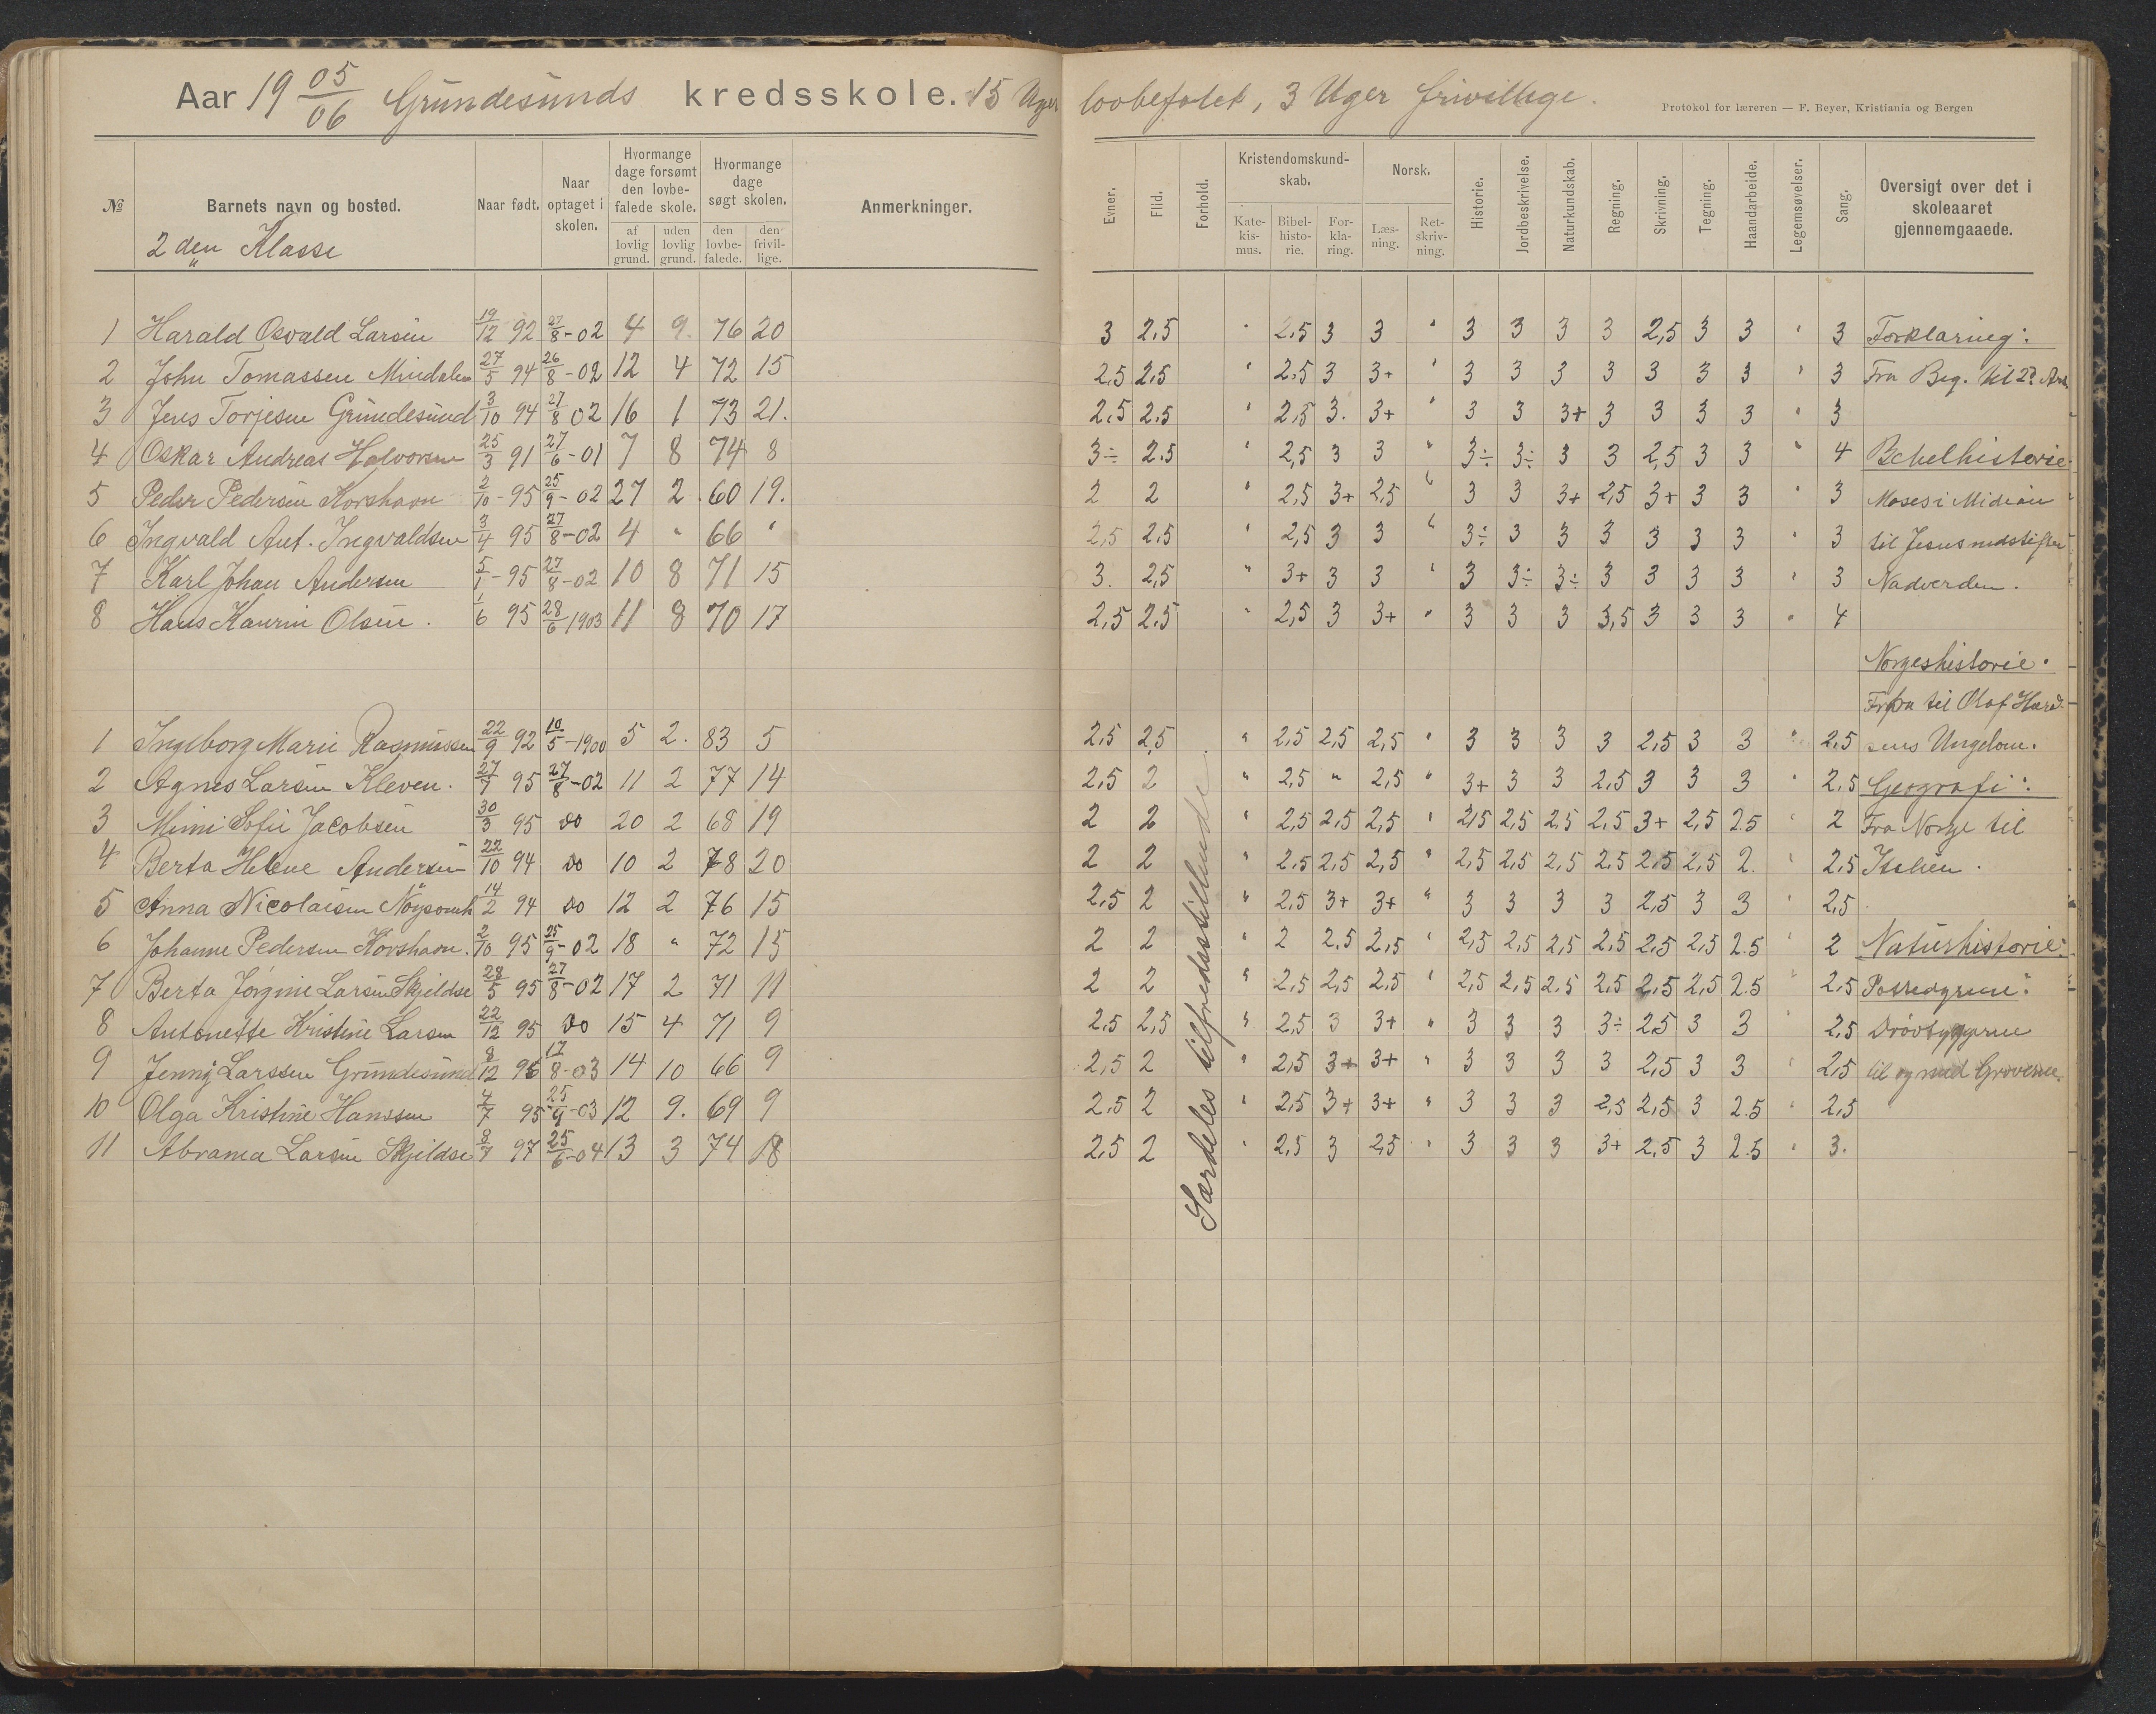 Aar 19 05/06 Grundesunds kredsskole. 15 Uger lovbefalet, 3 Uger frivillige.
Protokol for læreren — F. Beyer, Kristiania og Bergen
№ Barnets navn og bosted. Naar født. Naar optaget i skolen. Hvormange dage forsømt den lovbefalede skole. af lovlig grund. uden lovlig grund. Hvormange dage søgt skolen. den lovbefalede. den frivillige. Anmerkninger. Evner. Flid. Forhold. Kristendomskundskab. Katekismus. Bibelhistorie. Forklaring. Norsk. Læsning. Retskrivning. Historie. Jordbeskrivelse. Naturkundskab. Regning. Skrivning. Tegning. Haandarbeide. Legemsøvelser. Sang. Oversigt over det i skoleaaret gjennemgaaede.
2den Klasse
1 Harald Osvald Larsen 19/12 92 27/8-02 4 9. 76 20 3 2,5 " 2,5 3 3 " 3 3 3 3 2,5 3 3 " 3 Forklaring:
2 John Tomassen Mindalen 27/5 94 26/8-02 12 4 72 15 2,5 2,5 " 2,5 3 3+ " 3 3 3 3 3 3 3 " 3 Fra Beg. til 2? Art
3 Jens Torjesen Grundesund 3/10 94 27/8 02 16 1 73 21. 2,5 2,5 " 2,5 3. 3+ " 3 3 3+ 3 3 3 3 " 3
4 Oskar Andreas Halvorsen 25/3 91 27/6-01 7 8 74 8 3÷ 2.5 " 2,5 3 3 " 3÷ 3÷ 3 3 2,5 3 3 " 4 Bibelhistorie:
5 Peder Pedersen Korshavn 2/10-95 25/9-02 27 2. 60 19. 2 2 " 2,5 3+ 2,5 " 3 3 3+ 2,5 3+ 3 3 " 3 Moses i Midian
6 Ingvald Ant. Ingvaldsen 3/4 95 27/8-02 4 " 66 " 2,5 2,5 " 2,5 3 3 " 3÷ 3 3 3 3 3 3 " 3 til Jesus indstifter
7 Karl Johan Andersen 5/1-95 27/8-02 10 8 71 15 3. 2,5 " 3+ 3 3 " 3 3÷ 3÷ 3 3 3 3 " 3 Nadverden.
8 Hans Kaurin Olsen. 1/6 95 28/6 1903 11 8 70 17 2,5 2,5 " 2,5 3 3+ " 3 3 3 3,5 3 3 3 " 4
Norgeshistorie.
Fra til Olaf Harald
1 Ingeborg Marie Rasmussen 22/9 92 10/5-1900 5 2. 83 5 2,5 2,5 " 2,5 2,5 2,5 " 3 3 3 3 2,5 3 3 " 2,5 sens Ungdom.
2 Agnes Larsen Kleven. 27/7 95 27/8-02 11 2 77 14 2,5 2 " 2,5 " 2,5 " 3+ 3 3 2,5 3 3 3 " 2,5 Geografi:
3 Mimi Sofie Jacobsen 30/3 95 do 20 2 68 19 2 2 " 2,5 2,5 2,5 " 2,5 2,5 2,5 2,5 3+ 2,5 2.5 " 2 Fra Norge til
4 Berta Helene Andersen 22/10 94 do 10 2 78 20 2 2 " 2.5 2,5 2,5 " 2,5 2,5 2,5 2,5 2,5 2,5 2. " 2,5 Italien.
5 Anna Nicolaisen 14/2 94 do 12 2 76 15 2,5 2 " 2,5 3+ 3+ " 3 3 3 3 2,5 3 3 " 2,5
6 Johanne Pedersen Korshavn. 2/10 95 25/9-02 18 " 72 15 2 2 " 2 2.5 2,5 " 2,5 2,5 2,5 2,5 2,5 2,5 2.5 " 2 Naturhistorie:
7 Berta Jørgine Larsen Skjeldsø 28/5 95 27/8-02 17 2 71 11 2 2 " 2,5 2,5 2,5 " 2,5 2,5 2.5 2,5 2,5 2,5 2.5 " 2.5
8 Antonette Kristine Larsen 22/12 95 do 15 4 71 9 2,5 2,5 " 2,5 3 3+ " 3 3 3 3÷ 2,5 3 3 2,5 Drøvtyggerne
9 Jenny Larssen Grundesund 8/12 96 17/8-03 14 10 66 9 2,5 2 " 2,5 3+ 3+ " 3 3 3 3 2,5 3 3 " 2,5 til og med Gnaverne.
10 Olga Kristine Hanssen 4/7 95 25/9-03 12 9. 69 9 2,5 2 " 2,5 3+ 3+ " 3 3 3 2,5 2,5 3 2.5 " 2,5
11 Abrama Larsen Skjeldsø 8/7 97 25/6-04 13 3 74 18 2,5 2 " 2,5 3 2,5 " 3 3 3 3+ 2,5 3 2.5 " 3.
Særdeles tilfredsstillende.